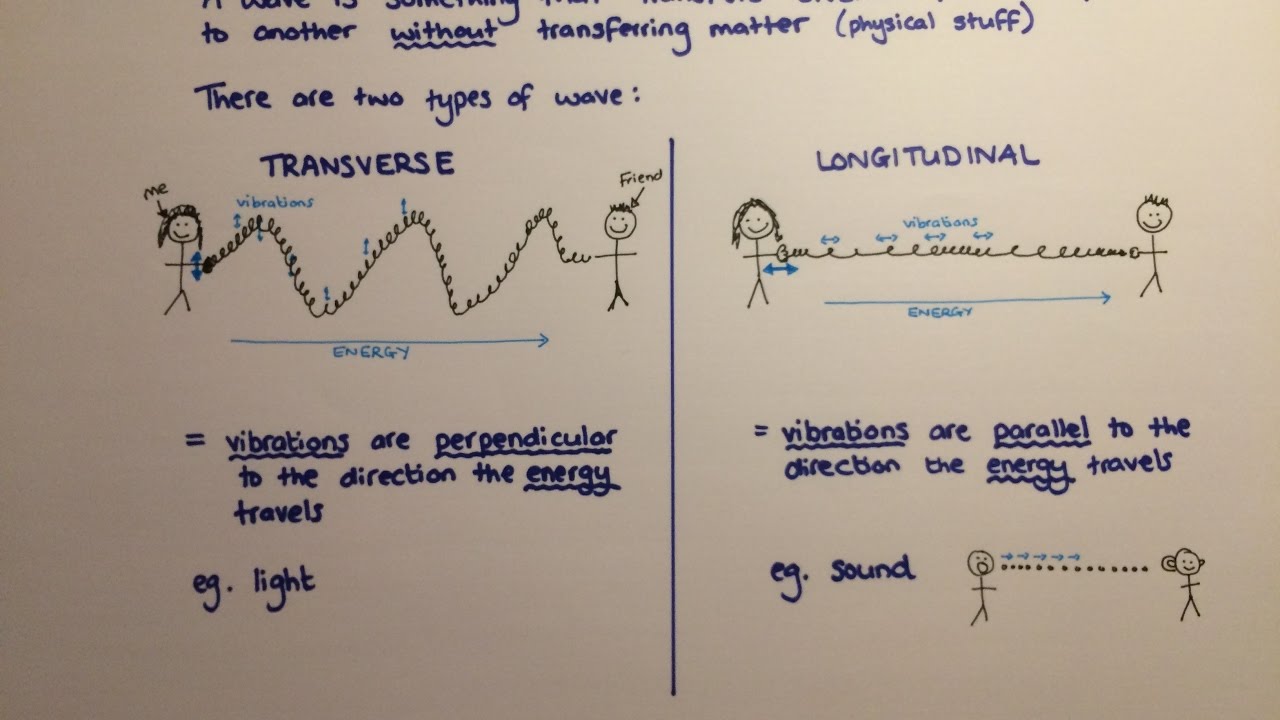 to another without transferring matter (physical stuff)
There are two types of wave:
TRANSVERSE
me
vibrations
Friend
ENERGY
= vibrations are perpendicular
to the direction the energy
travels
eg. light
LONGITUDINAL
vibrations
ENERGY
= vibrations are parallel to the
direction the energy travels
eg. sound